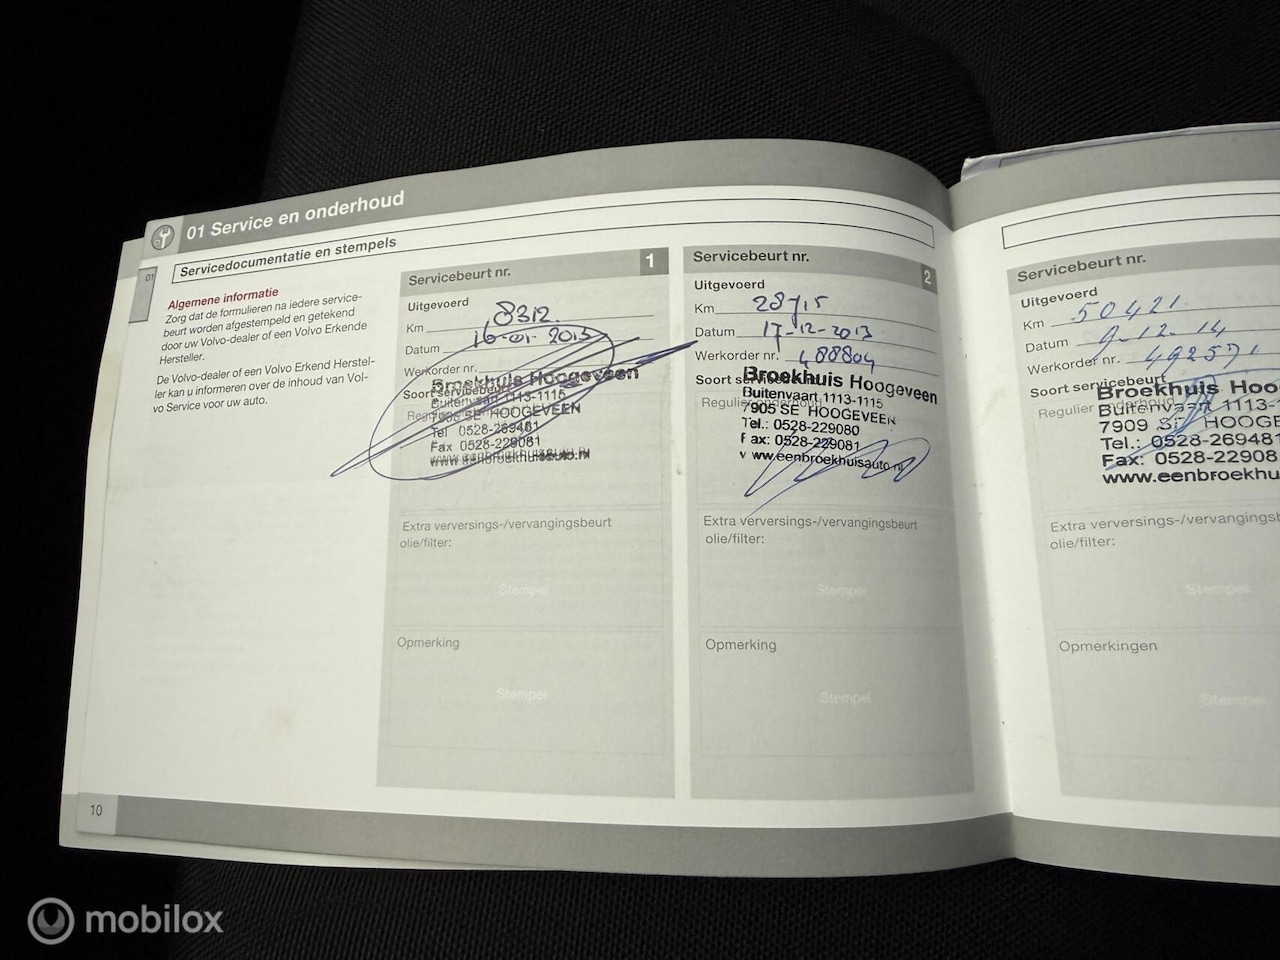 01 Service en onderhoud
01
Servicedocumentatie en stempels
Algemene informatie
Zorg dat de formulieren na iedere service-
beurt worden afgestempeld en getekend
door uw Volvo-dealer of een Volvo Erkende
Hersteller.
De Volvo-dealer of een Volvo Erkend Herstel-
ler kan u informeren over de inhoud van Vol-
vo Service voor uw auto.
Servicebeurt nr. 1
Uitgevoerd
Km 8312
Datum 16-01-2013
Werkorder nr.
Soort servicebeurt
Broekhuis Hoogeveen
Buitenvaart 1113-1115
7905 SE HOOGEVEEN
Tel 0528-269481
Fax 0528-229081
Extra verversings-/vervangingsbeurt
olie/filter:
Stempel
Opmerking
Stempel
Servicebeurt nr. 2
Uitgevoerd
Km 28715
Datum 17-12-2013
Werkorder nr. 488804
Soort servicebeurt
Regulier onderhoud
Broekhuis Hoogeveen
Buitenvaart 1113-1115
7905 SE HOOGEVEEN
Tel.: 0528-229080
Fax: 0528-229081
www.eenbroekhuisauto.nl
Extra verversings-/vervangingsbeurt
olie/filter:
Stempel
Opmerking
Stempel
Servicebeurt nr.
Uitgevoerd
Km 50421
Datum 9-12-14
Werkorder nr. 492571
Soort servicebeurt
Regulier onderhoud
Broekhuis Hoo
Buitenvaart 1113-1
7909 S HOOGE
Tel.: 0528-269481
Fax: 0528-22908
www.eenbroekhu
Extra verversings-/vervangingsb
olie/filter:
Stempel
Opmerkingen
Stempel
10
mobilox